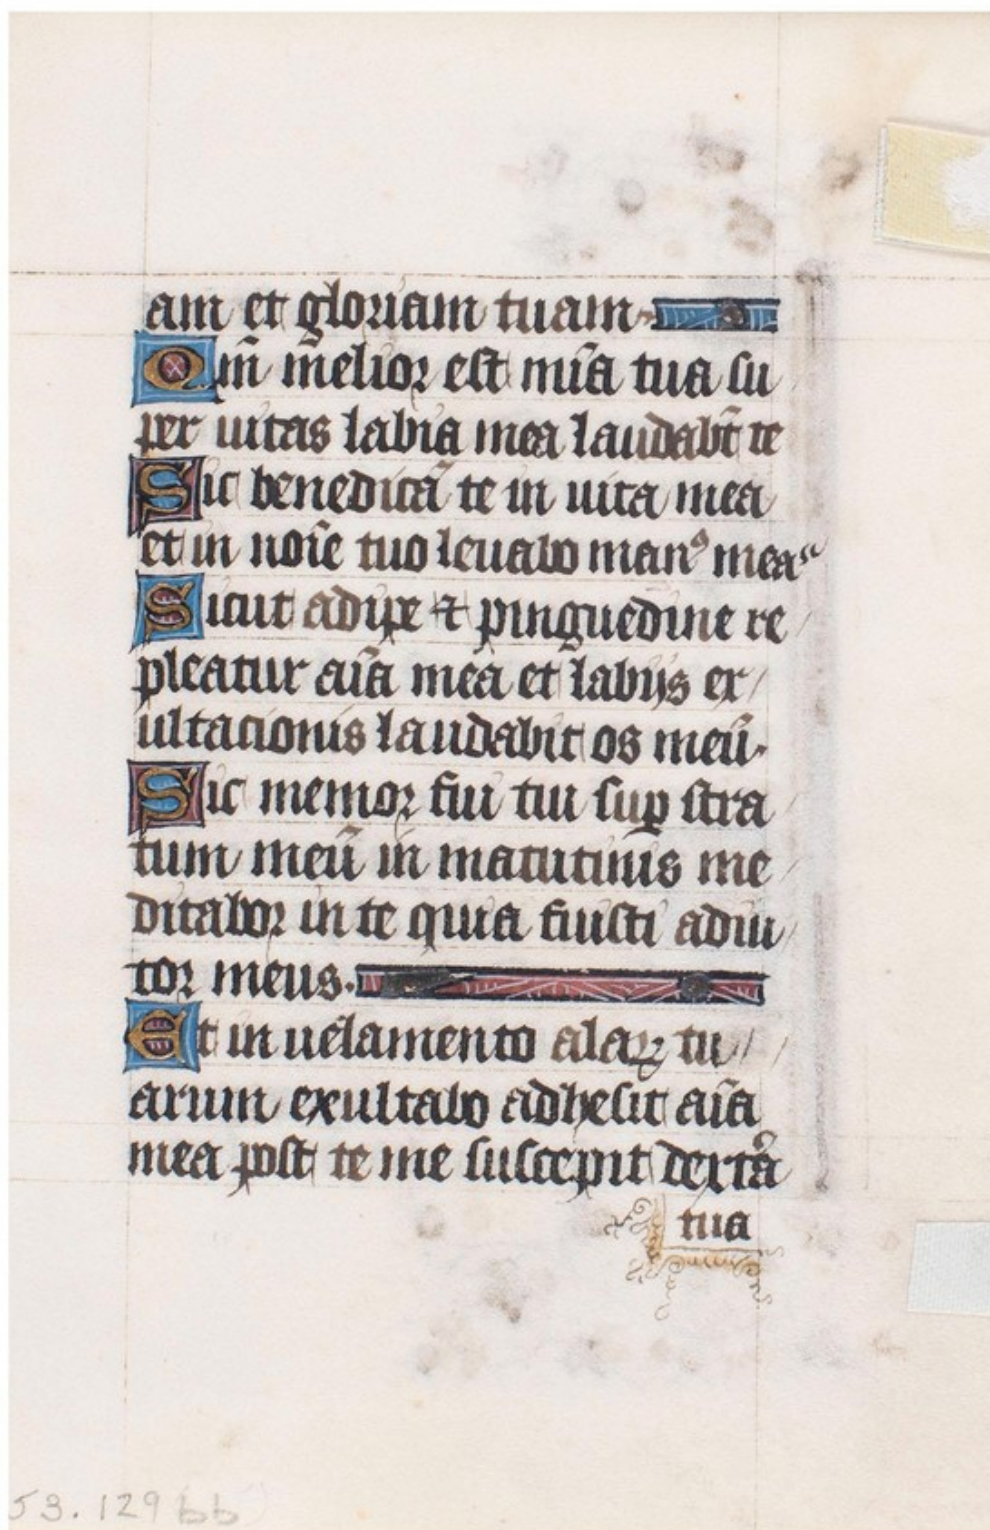 am et gloriam tuam·
Qm̄ melior est mīa tua su
per uitas labia mea laudabt̄ te
Sic benedicā te in uita mea
et in noīe tuo leuabo manꝰ meas
Sicut adipe ⁊ pinguedine re
pleatur aīa mea et labijs ex
ultacionis laudabit os meū·
Sic memor fui tui suꝑ stra
tum meū in matutinis me
ditabor in te quia fuisti adiu
tor meus·
Et in uelamento alaꝝ tu
arum exultabo adhesit aīa
mea post te me suscepit dextʳa
tua
53.129 bb